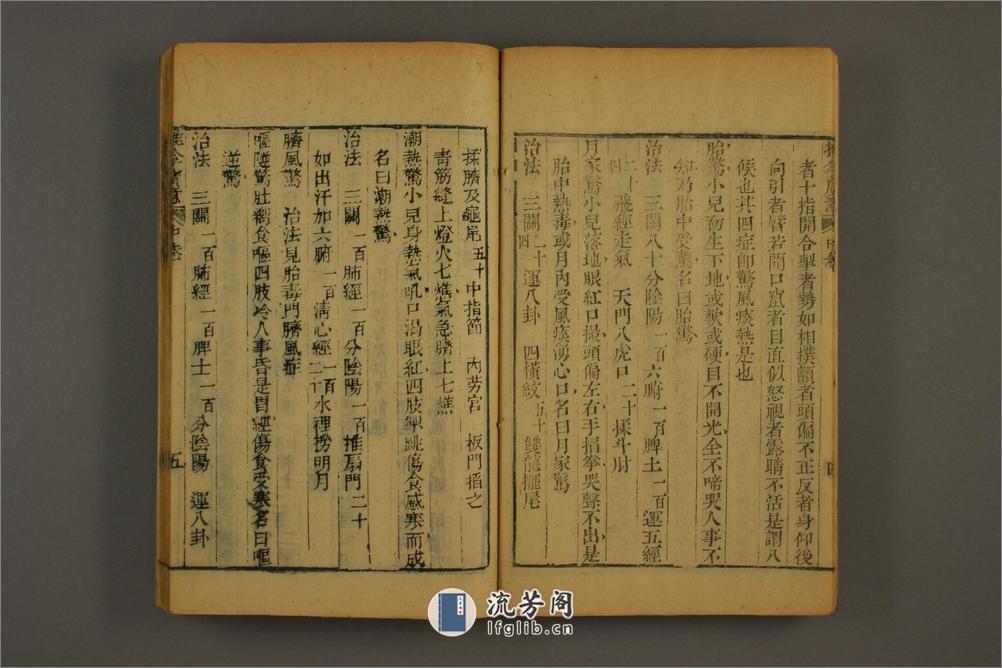 者十指開合掣者勢如相撲顫者頭偏不正反者身仰後
向引者臂若開口竄者目直似怒視者露睛不活是謂八
候也其四症即驚風痰熱是也
胎驚小兒初生下地或軟或硬目不開光全不啼哭人事不
知乃胎中受驚名曰胎驚
治法 三關八十分陰陽一百六腑一百脾土一百運五經
二十飛經走氣 天門入虎口二十揉斗肘
月家驚小兒落地眼紅口撮頭偏左右手搯拳哭聲不出是
胎中熱毒或月內受風痰湧心口名曰月家驚
治法 三關二十四運八卦 四橫紋五十雙龍擺尾
中卷
揉臍及龜尾五十中指節 內勞宮 板門搯之
青筋縫上燈火七燋氣急臍上七燋
潮熱驚小兒身熱氣吼口渴眼紅四肢掣跳傷食感寒而成
名曰潮熱驚
治法 三關一百肺經一百分陰陽一百推扇門二十
如出汗加六腑一百清心經二十水裡撈明月
臍風驚 治法見胎毒門臍風症
嘔逆驚肚響食嘔四肢冷人事昏是胃經傷食受寒名曰嘔
逆驚
治法 三關一百肺經一百脾土一百分陰陽 運八卦
中卷 五
流芳阁
lfglib.cn